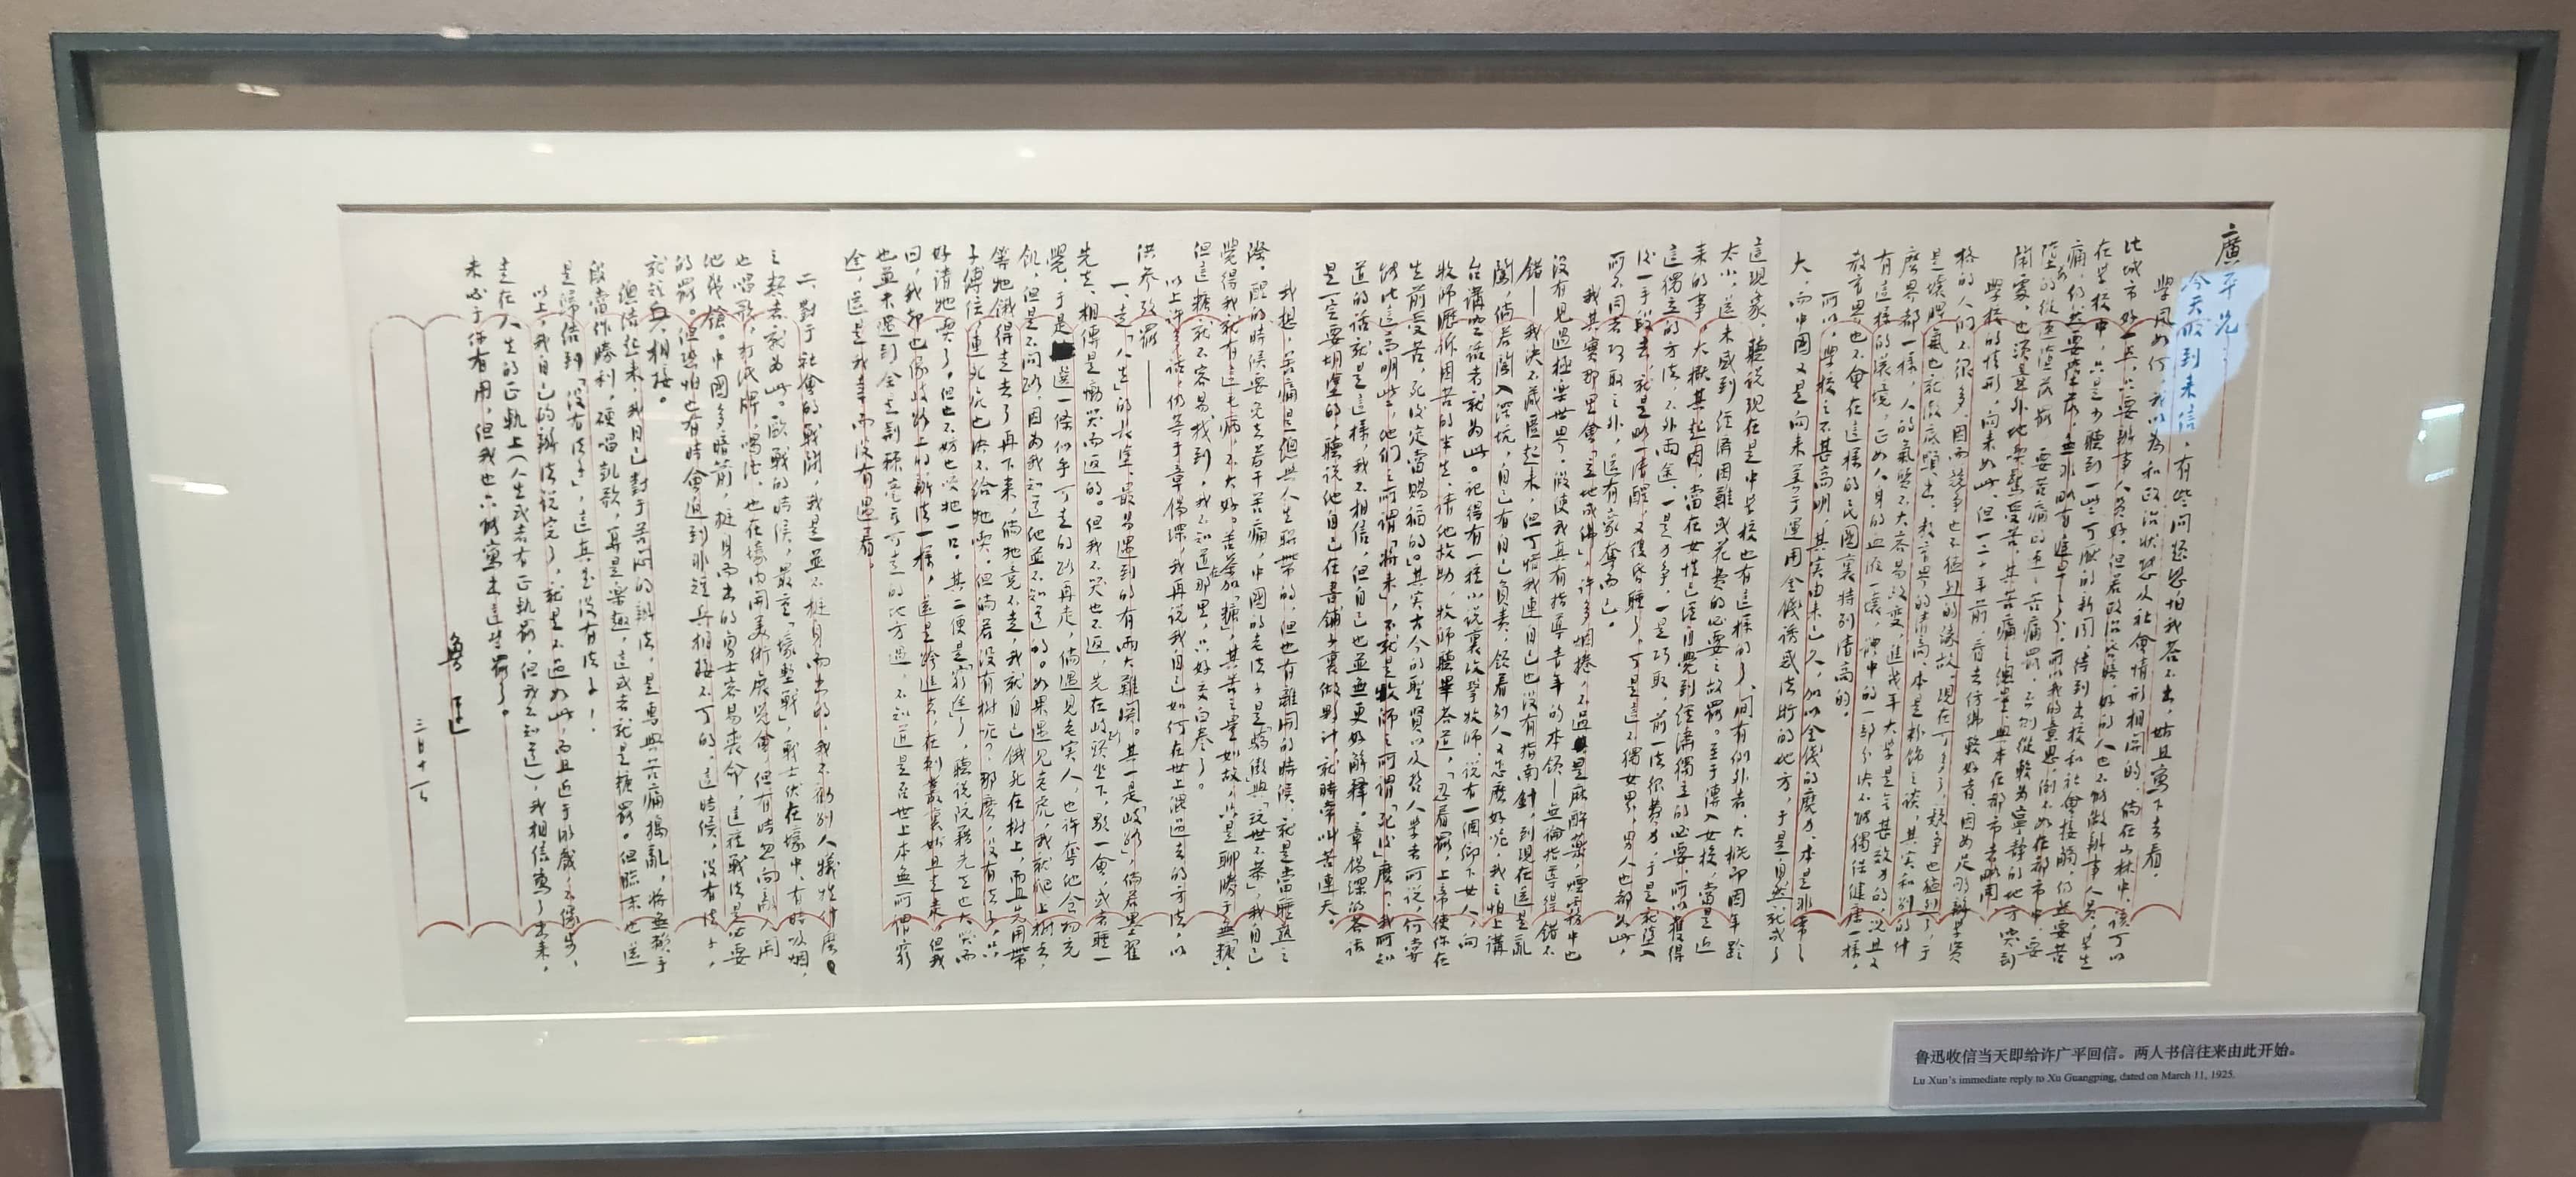 廣平兄：
今天收到來信，有些問題恐怕我答不出，姑且寫下去看。
學風如何，我以為和政治狀態及社會情形相關的，倘在山林中，該可以
比城市好一點，只要辦事人員好。但若政治昏暗，好的人也不能做辦事人員，學生
在學校中，只是少聽到一些可厭的新聞，待到出校和社會接觸，仍然要苦
痛，仍然要墮落，無非略有遲早之分。所以我的意思，倒不如在都市中，要
墮落的從速墮落罷，要苦痛的速速苦痛罷，否則從較為寧靜的地方突到
鬧處，也須意外地喫驚受苦，其苦痛之總量，與本在都市者略同。
學校的情形，向來如此，但一二十年前，看去仿佛較好者，因為足夠辦學資
格的人們不很多，因而競爭也不猛烈的緣故。現在可多了，競爭也猛烈了，于
是壞脾氣也就徹底顯出。教育界的清高，本是粉飾之談，其實和別的什
麼界都一樣，人的氣質不大容易改變，進幾年大學是無甚效力的。況且又
有這樣的環境，正如人身的血液一壞，體中的一部分決不能獨保健康一樣，
教育界也不會在這樣的民國裏特別清高的。
所以，學校之不甚高明，其實由來已久，加以金錢的魔力，本是非常之
大，而中國又是向來善于運用金錢誘惑法術的地方，于是自然就成了
這現象。聽說現在是中學校也有這樣的了，間有例外者，大概即因年齡
太小，還未感到經濟困難或花費的必要之故罷。至于傳入女校，當是近
來的事，大概其起因，當在女性已經自覺到經濟獨立的必要，所以獲得
這獨立的方法，不外兩途，一是力爭，一是巧取，前一法很費力，于是就墮入
後一手段去，就是略一清醒，又復昏睡了。可是這不獨女界，男人也都如此，
所不同者巧取之外，還有豪奪而已。
我其實那裏會「立地成佛」，許多烟捲，不過是麻醉藥，烟霧中也
沒有見過極樂世界。假使我真有指導青年的本領——無論指導得錯不
錯——我決不藏匿起來，但可惜我連自己也沒有指南針，到現在還是亂
闖，倘若闖入深坑，自己有自己負責，領着別人又怎麼好呢，我之怕上講
台講空話者就為此。記得有一種小說裏攻擊牧師，說有一個鄉下女人，向
牧師瀝訴困苦的半生，請他救助，牧師聽畢答道，「忍着罷，上帝使你在
生前受苦，死後定當賜福的。」其實古今的聖賢以及哲人學者所說，何嘗
能比這高明些，他們之所謂「將來」，不就是牧師之所謂「死後」麼？我所知
道的話就是這樣，我不相信，但自己也並無更好解釋。章錫琛的答話
是一定要胡塗的，聽說他自己在書鋪子裏做夥計，就時常叫苦連天。
我想，苦痛是總與人生聯帶的，但也有離開的時候，就是當睡熟之
際。醒的時候要免去若干苦痛，中國的老法子是「驕傲」與「玩世不恭」，我自己
覺得我就有這毛病，不大好。苦茶加「糖」，其苦之量如故，只是聊勝于無「糖」，
但這糖就不容易找到，我不知道在那裏，只好交白卷了。
以上許多話，仍等于章錫琛，我再說我自己如何在世上混過去的方法，以
供參考罷——
一，走「人生」的長途，最易遇到的有兩大難關。其一是「岐路」，倘若墨翟
先生，相傳是慟哭而返的。但我不哭也不返，先在岐路頭坐下，歇一會，或者睡一
覺，于是選一條似乎可走的路再走，倘遇見老實人，也許奪他食物充
飢，但是不問路，因為我知道他並不知道的。如果遇見老虎，我就爬上樹去，
等牠餓得走去了再下來，倘牠竟不走，我就自己餓死在樹上，而且先用帶
子縛住，連死屍也決不給牠喫。但倘若沒有樹呢？那麼，沒有法子，只
好請牠喫了，但也不妨也咬牠一口。其二便是「窮途」了，聽說阮籍先生也大哭而
回，我卻也像岐路上的辦法一樣，還是跨進去，在刺叢裏姑且走走。但我
也並未遇到全是荊棘毫無可走的地方過，不知道是否世上本無所謂窮
途，還是我幸而沒有遇着。
二，對于社會的戰鬥，我是並不挺身而出的，我不勸別人犧牲什麼
之類者就為此。歐戰的時候，最重「壕塹戰」，戰士伏在壕中，有時吸烟，
也唱歌，打紙牌，喝酒，也在壕內開美術展覽會，但有時忽向敵人開
他幾鎗。中國多暗箭，挺身而出的勇士容易喪命，這種戰法是必要
的罷。但恐怕也有時會逼到非短兵相接不可的，這時候，沒有法子，
就短兵相接。
總結起來，我自己對于苦悶的辦法，是專與苦痛搗亂，將無賴手
段當作勝利，硬唱凱歌，算是樂趣，這或者就是糖罷。但臨末也還
是歸結到「沒有法子」，這真是沒有法子！
以上，我自己的辦法說完了，就是不過如此，而且近于遊戲，不像步步
走在人生的正軌上（人生或者有正軌罷，但我不知道），我相信寫了出來，
未必于你有用，但我也只能寫出這些罷了。
魯迅
三月十一日
鲁迅收信当天即给许广平回信。两人书信往来由此开始。
Lu Xun's immediate reply to Xu Guangping, dated on March 11, 1925.